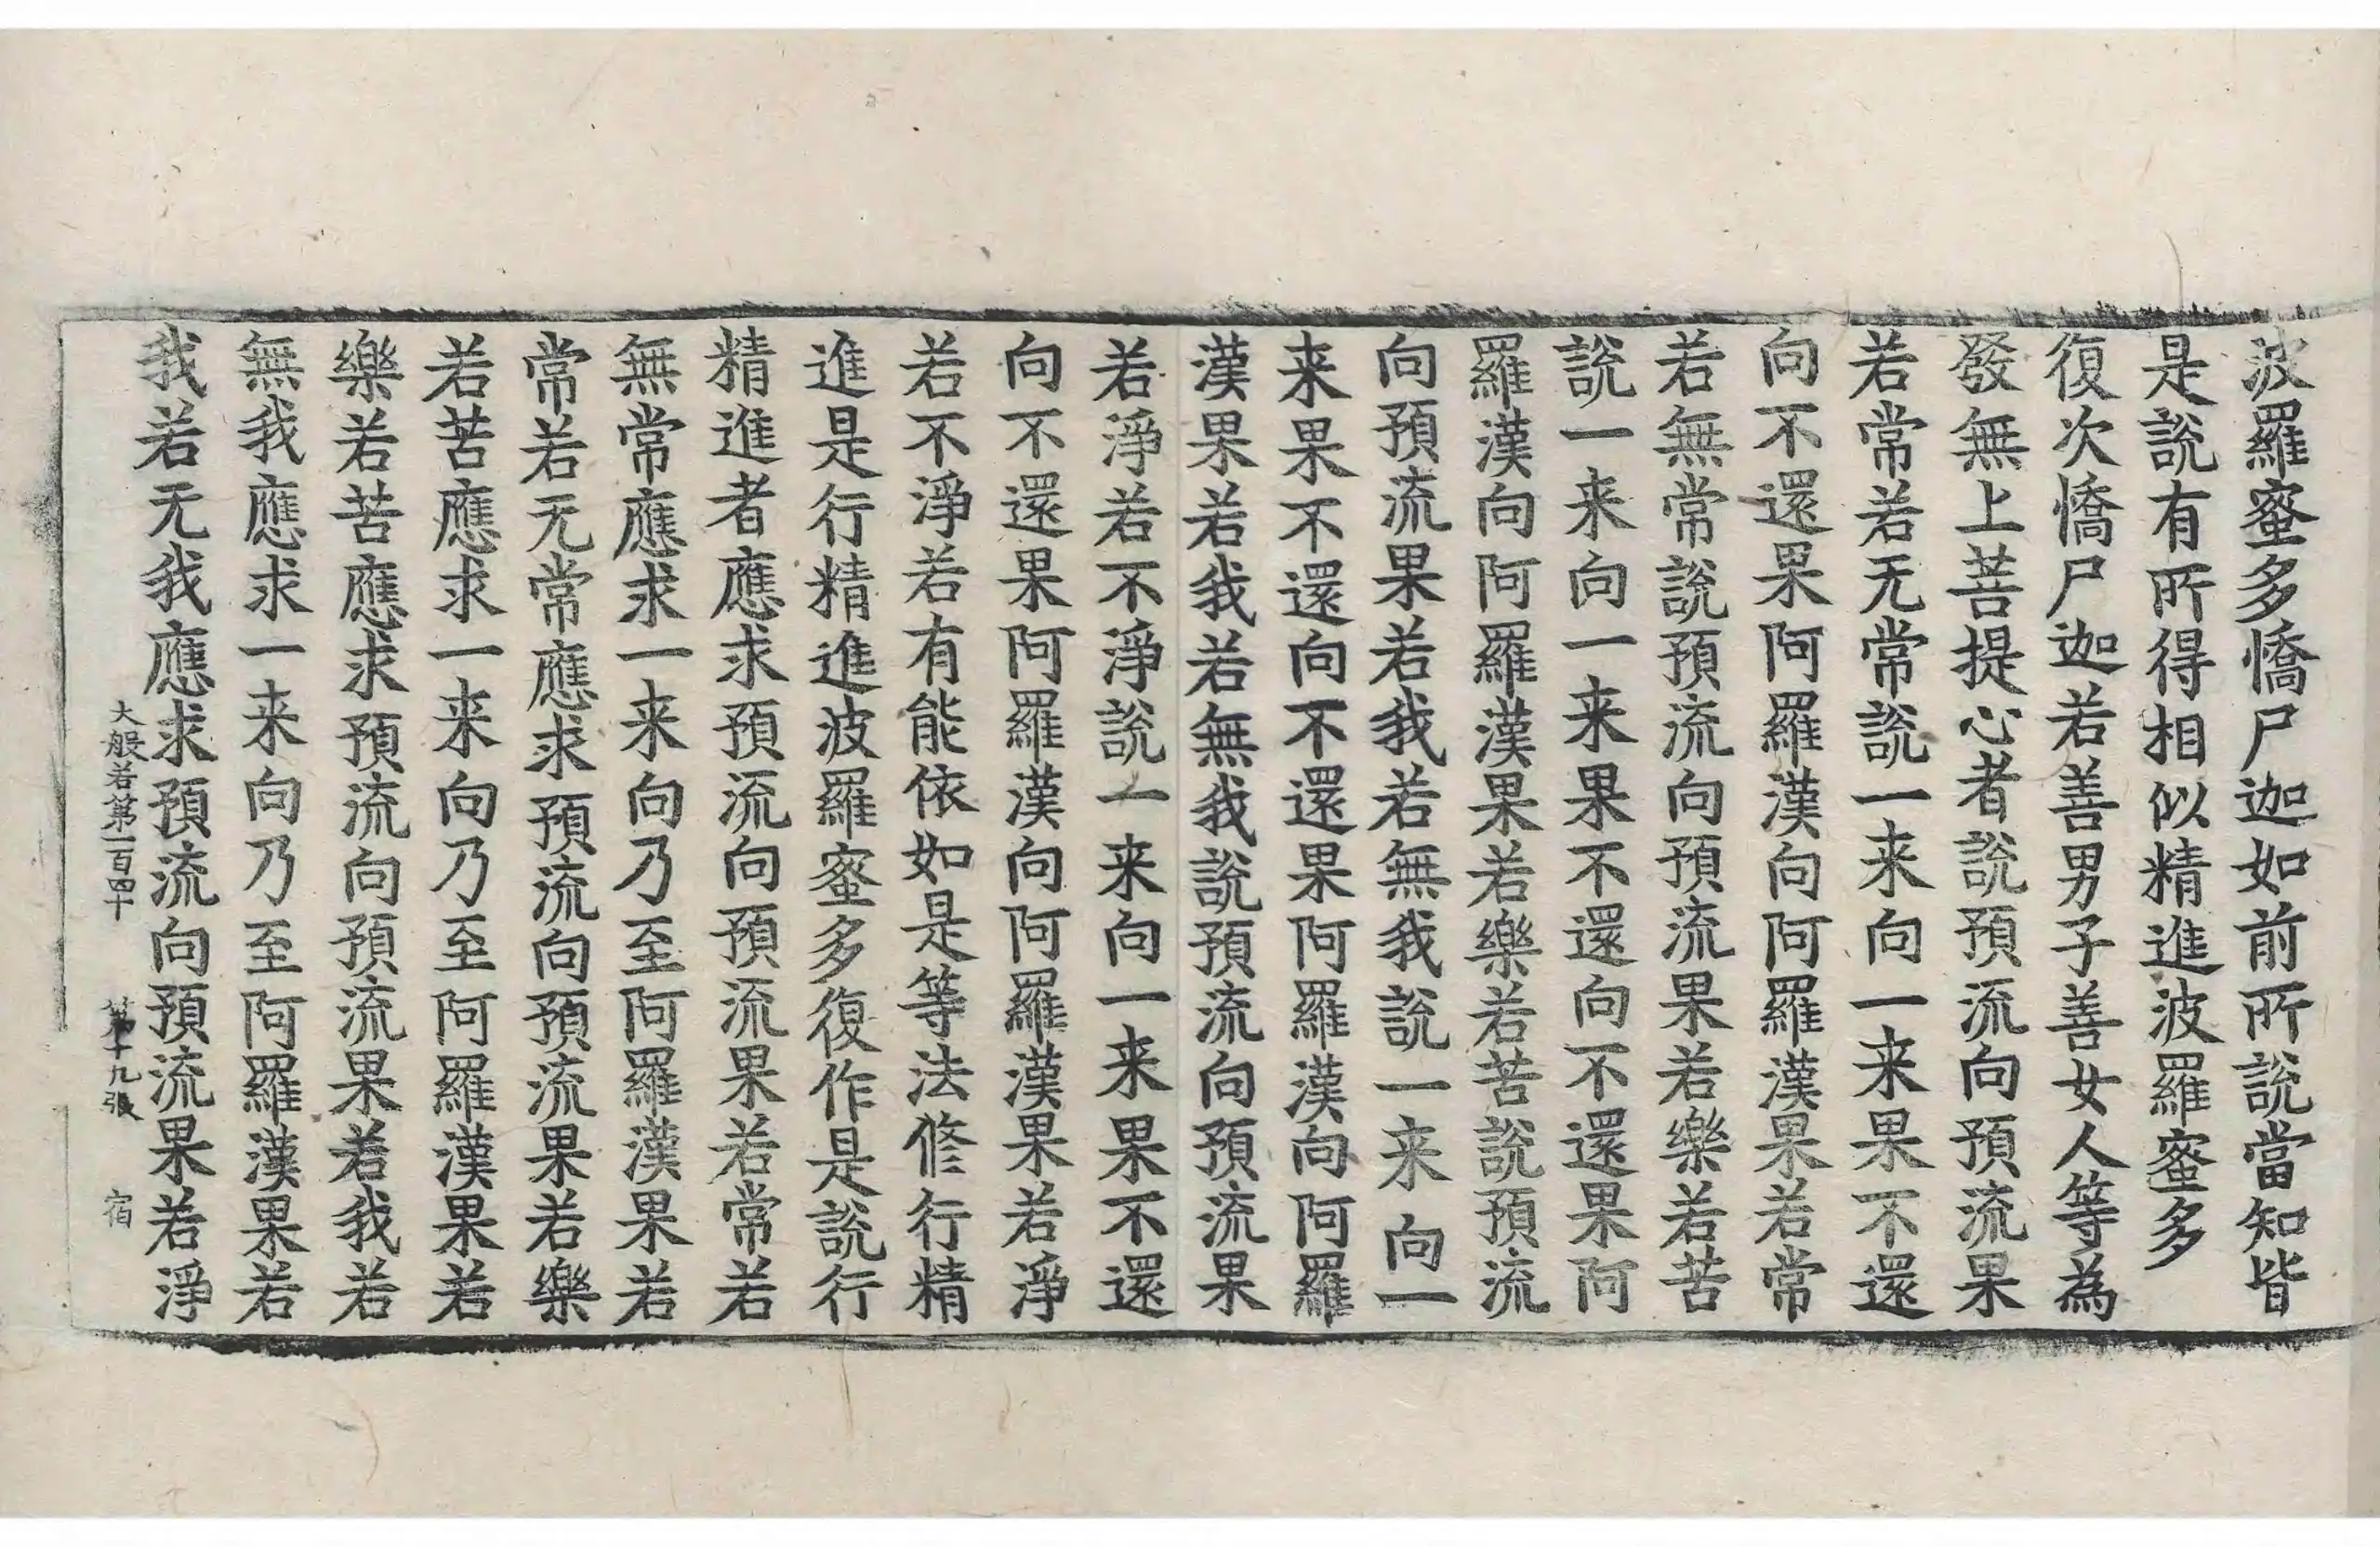 波羅蜜多憍尸迦如前所說當知皆
是說有所得相似精進波羅蜜多
復次憍尸迦若善男子善女人等為
發無上菩提心者說預流向預流果
若常若无常說一来向一来果不還
向不還果阿羅漢向阿羅漢果若常
若無常說預流向預流果若樂若苦
說一来向一来果不還向不還果阿
羅漢向阿羅漢果若樂若苦說預流
向預流果若我若無我說一来向一
来果不還向不還果阿羅漢向阿羅
漢果若我若無我說預流向預流果
若淨若不淨說一来向一来果不還
向不還果阿羅漢向阿羅漢果若淨
若不淨若有能依如是等法修行精
進是行精進波羅蜜多復作是說行
精進者應求預流向預流果若常若
無常應求一来向乃至阿羅漢果若
常若无常應求預流向預流果若樂
若苦應求一来向乃至阿羅漢果若
樂若苦應求預流向預流果若我若
無我應求一来向乃至阿羅漢果若
我若无我應求預流向預流果若淨
大般若第一百四十 第十九張 宿